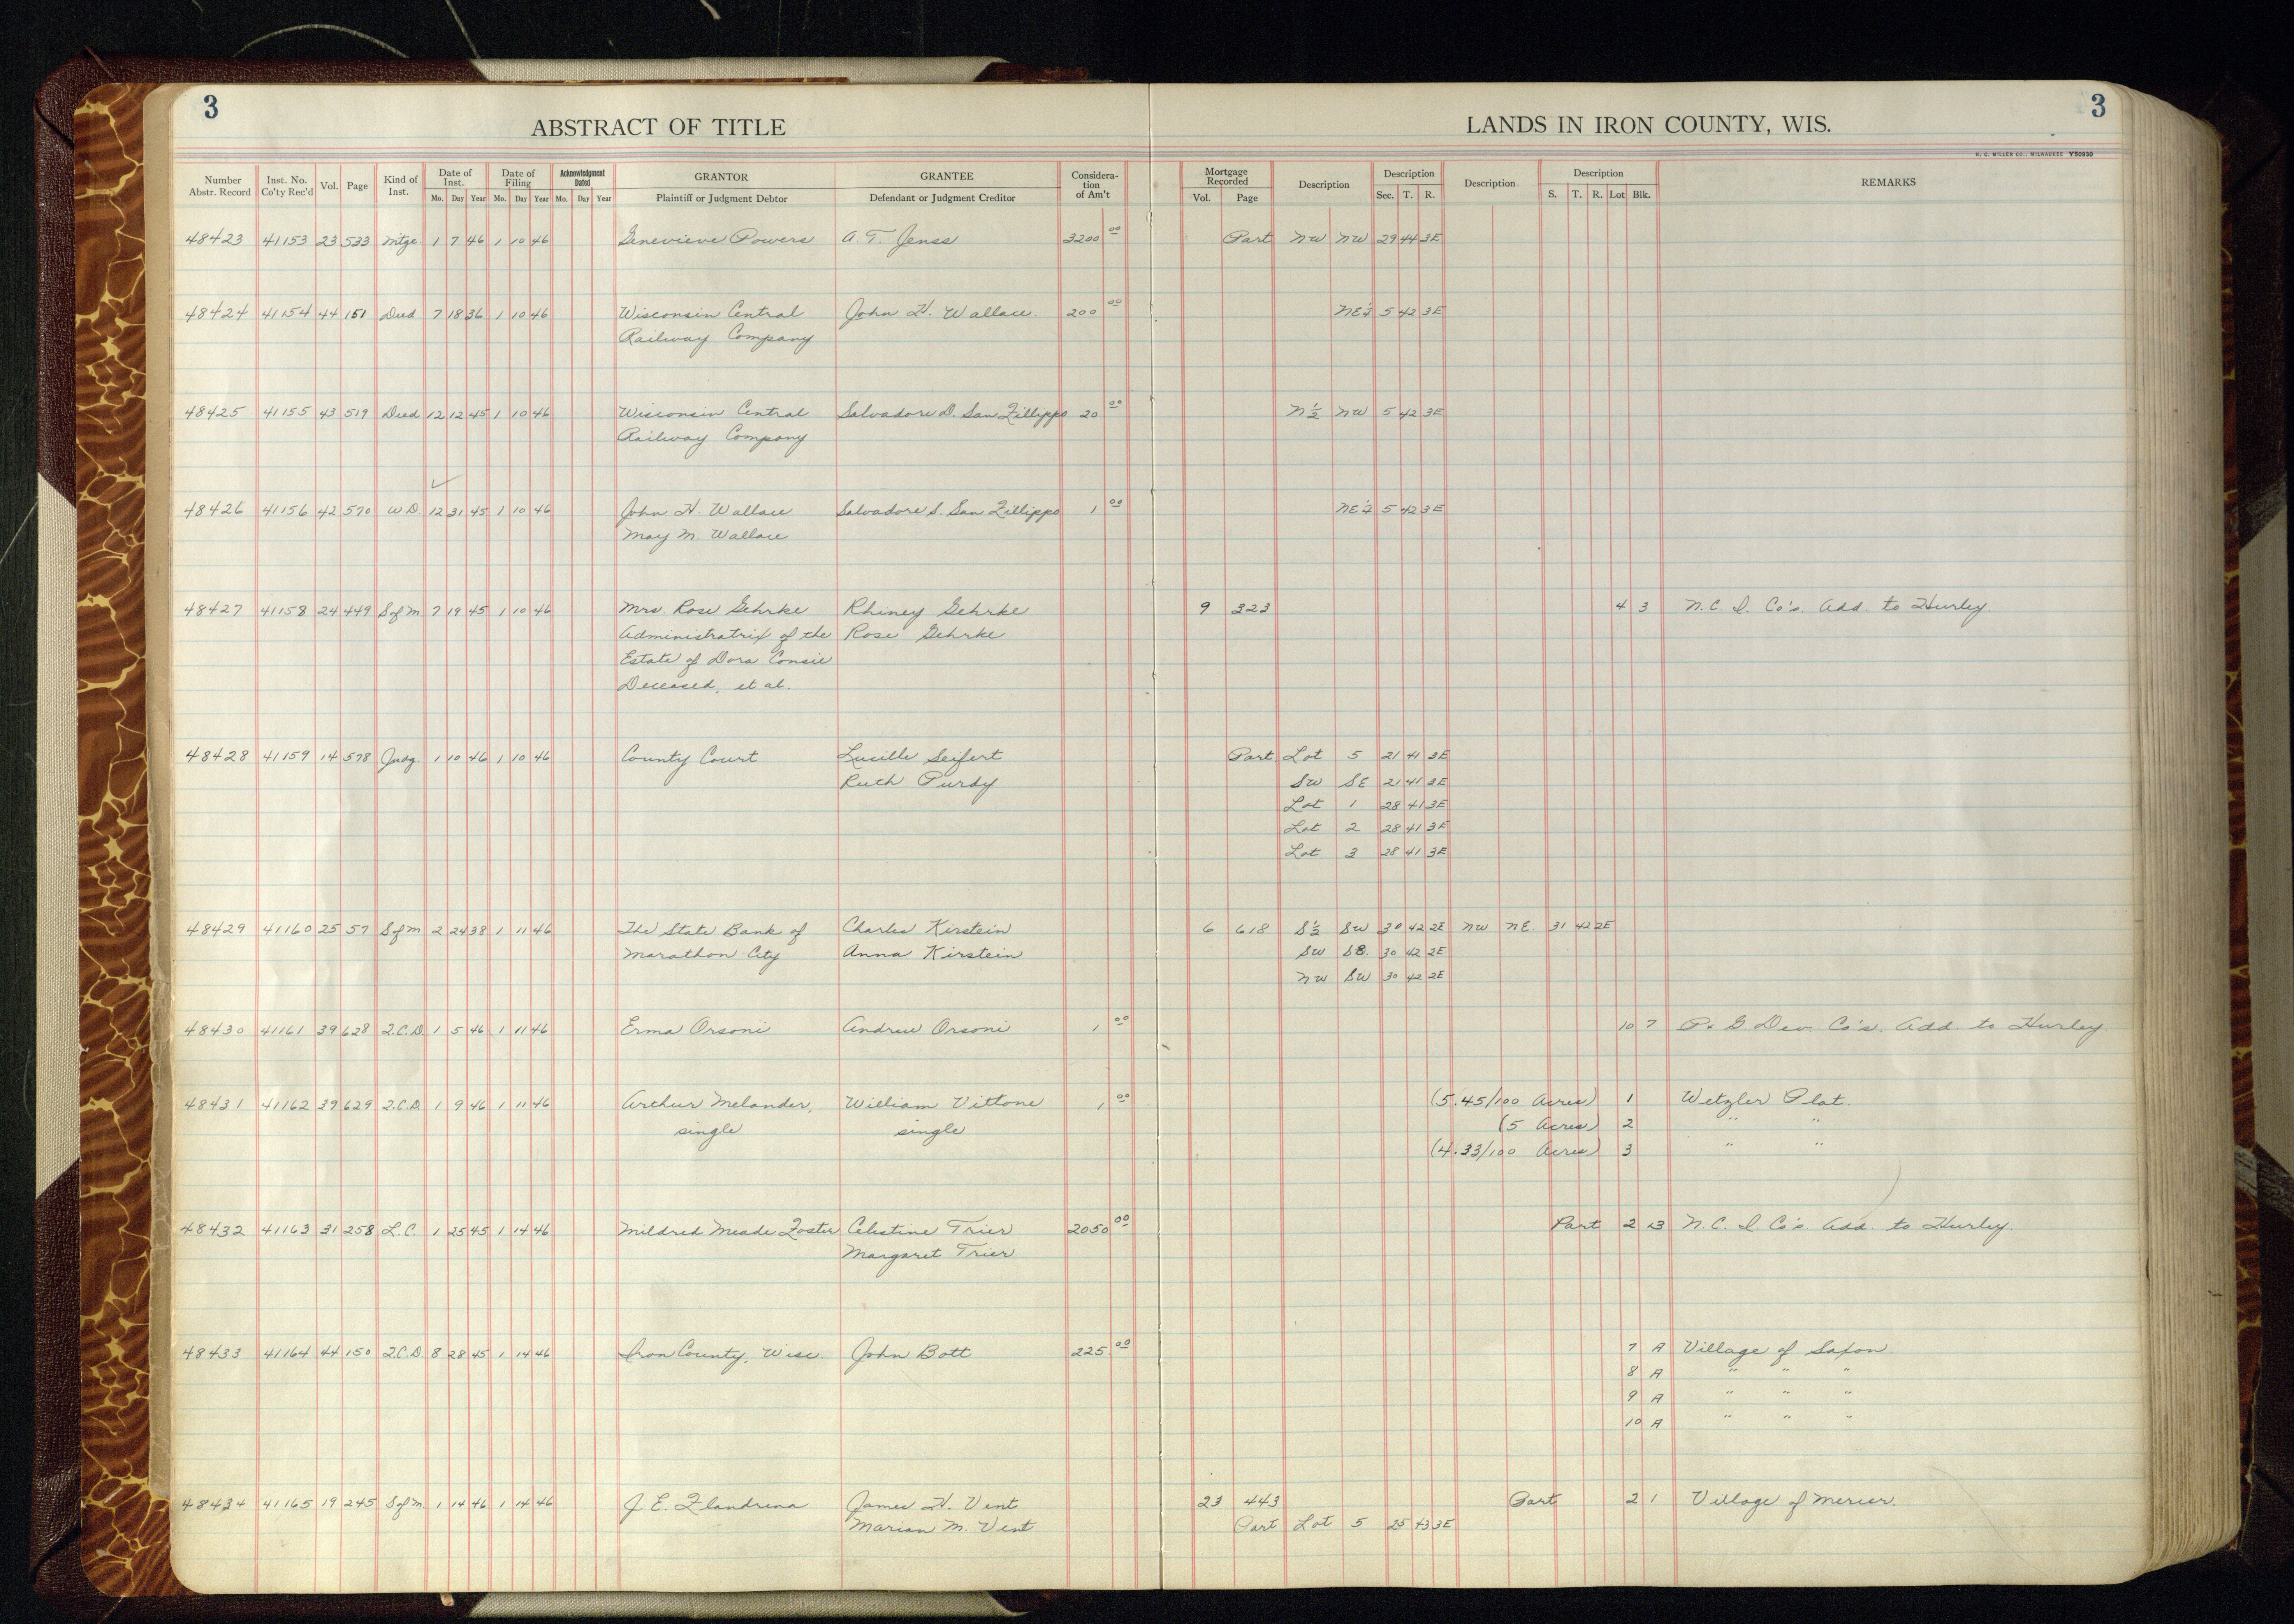 3
3
ABSTRACT OF TITLE
LANDS IN IRON COUNTY, WIS.
H. C. MILLER CO., MILWAUKEE Y50930
Number Abstr. Record Inst. No. Co'ty Rec'd Vol. Page Kind of Inst. Date of Inst. Mo. Day Year Date of Filing Mo. Day Year Acknowledgment Dated Mo. Day Year GRANTOR Plaintiff or Judgment Debtor GRANTEE Defendant or Judgment Creditor Considera-tion of Am't Mortgage Recorded Vol. Page Description Description Sec. T. R. Description Description S. T. R. Lot Blk. REMARKS
48423 41153 23 533 Mtge. 1 7 46 1 10 46 Genevieve Powers A. T. Jenss 3200 00 Part NW NW 29 44 3E
48424 41154 44 151 Deed 7 18 36 1 10 46 Wisconsin Central John H. Wallace. 200 00 NE¼ 5 42 3E
Railway Company
48425 41155 43 519 Deed 12 12 45 1 10 46 Wisconsin Central Salvadore D. San Fillippo 20 00 N½ NW 5 42 3E
Railway Company
✓
48426 41156 42 570 W.D. 12 31 45 1 10 46 John H. Wallace Salvadore S. San Fillippo 1 00 NE¼ 5 42 3E
May M. Wallace
48427 41158 24 449 S of M. 7 19 45 1 10 46 Mrs. Rose Gehrke Rhiney Gehrke 9 323 4 3 N. C. I. Co's. Add. to Hurley.
Administratrix of the Rose Gehrke
Estate of Dora Consie
Deceased, et al.
48428 41159 14 578 Judg. 1 10 46 1 10 46 County Court Lucille Seifert Part Lot 5 21 41 3E
Ruth Purdy SW SE 21 41 3E
Lot 1 28 41 3E
Lot 2 28 41 3E
Lot 3 28 41 3E
48429 41160 25 57 S of M 2 24 38 1 11 46 The State Bank of Charles Kirstein 6 618 S½ SW 30 42 2E NW NE. 31 42 2E
Marathon City Anna Kirstein SW SE. 30 42 2E
NW SW 30 42 2E
48430 41161 39 628 Q.C.D. 1 5 46 1 11 46 Erma Orsoni Andrew Orsoni 1 00 10 7 P. & G. Dev. Co's. Add. to Hurley
48431 41162 39 629 Q.C.D. 1 9 46 1 11 46 Arthur Melander, William Vittone 1 00 (5.45/100 Acres) 1 Wetzler Plat.
single single (5 Acres) 2 " "
(4.33/100 Acres) 3 " "
48432 41163 31 258 L.C. 1 25 45 1 14 46 Mildred Meade Foster Celestine Trier 2050 00 Part 2 13 N. C. I. Co's Add. to Hurley.
Margaret Trier
48433 41164 44 150 Q.C.D. 8 28 45 1 14 46 Iron County, Wisc. John Bott 225. 00 7 A Village of Saxon
8 A " " "
9 A " " "
10 A " " "
48434 41165 19 245 S of M. 1 14 46 1 14 46 J. E. Flandrena James H. Vent 23 443 Part 2 1 Village of Mercer.
Marian M. Vent Part Lot 5 25 43 3E